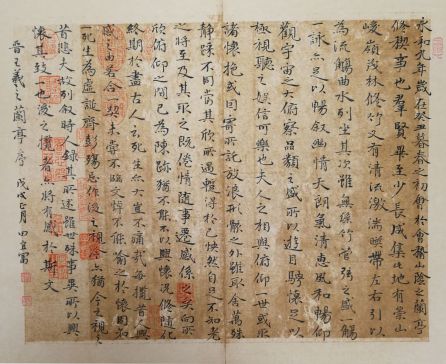 永和九年歲在癸丑暮春之初會于會稽山陰之蘭亭
修禊事也羣賢畢至少長咸集此地有崇山
峻嶺茂林修竹又有清流激湍暎帶左右引以
為流觴曲水列坐其次雖無絲竹管弦之盛一觴
一詠亦足以暢叙幽情天朗氣清惠風和暢仰
觀宇宙之大俯察品類之盛所以遊目騁懷足以
極視聽之娛信可樂也夫人之相與俯仰一世或取
諸懷抱或因寄所託放浪形骸之外雖取舍萬殊
靜躁不同當其欣所遇蹔得於己怏然自足不知老
之將至及其所之既倦情隨事遷感係之矣向所
欣俯仰之間已為陳跡猶不能不以興懷況脩隨化
終期於盡古人云死生亦大矣豈不痛哉每攬昔人興
感之由若合一契未嘗不臨文嗟悼不能喻之於懷固知
死生為虛誕齊彭殤為妄作後之視今亦猶今之視
昔悲夫故列叙時人録其所述雖殊事異所以興
懷其致一也後之攬者亦將有感於斯文
晉王羲之蘭亭序 戊戌正月 田宜富